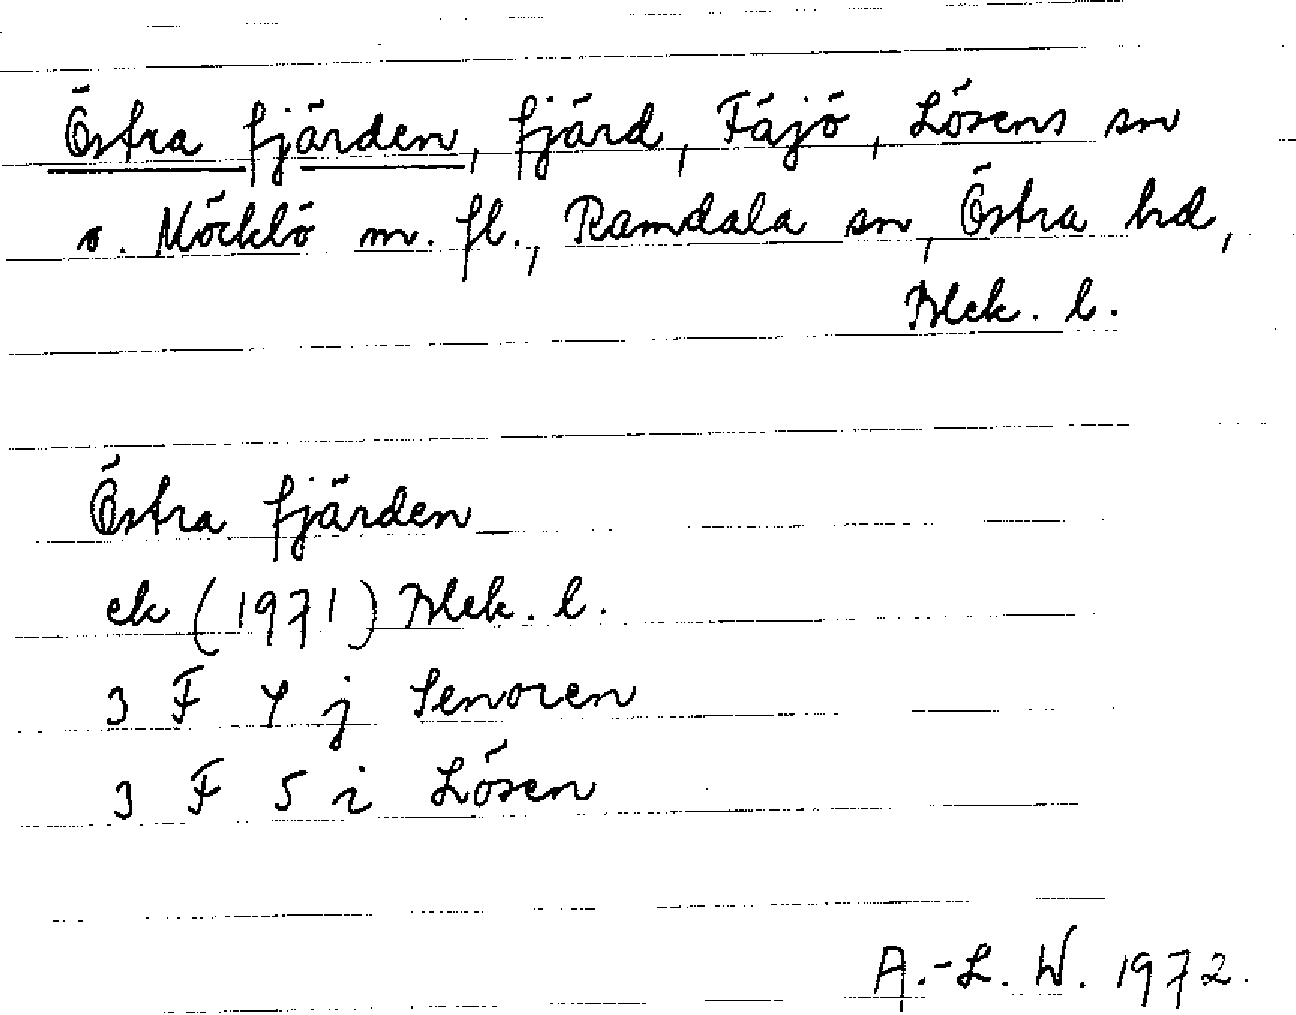 Östra fjärden, fjärd, Fäjö, Lösens sn
o. Möcklö m. fl., Ramdala sn, Östra hd,
Blek. l.
Östra fjärden
ek (1971) Blek. l.
3 F 4 j Senoren
3 F 5 i Lösen
A.-L. W. 1972.